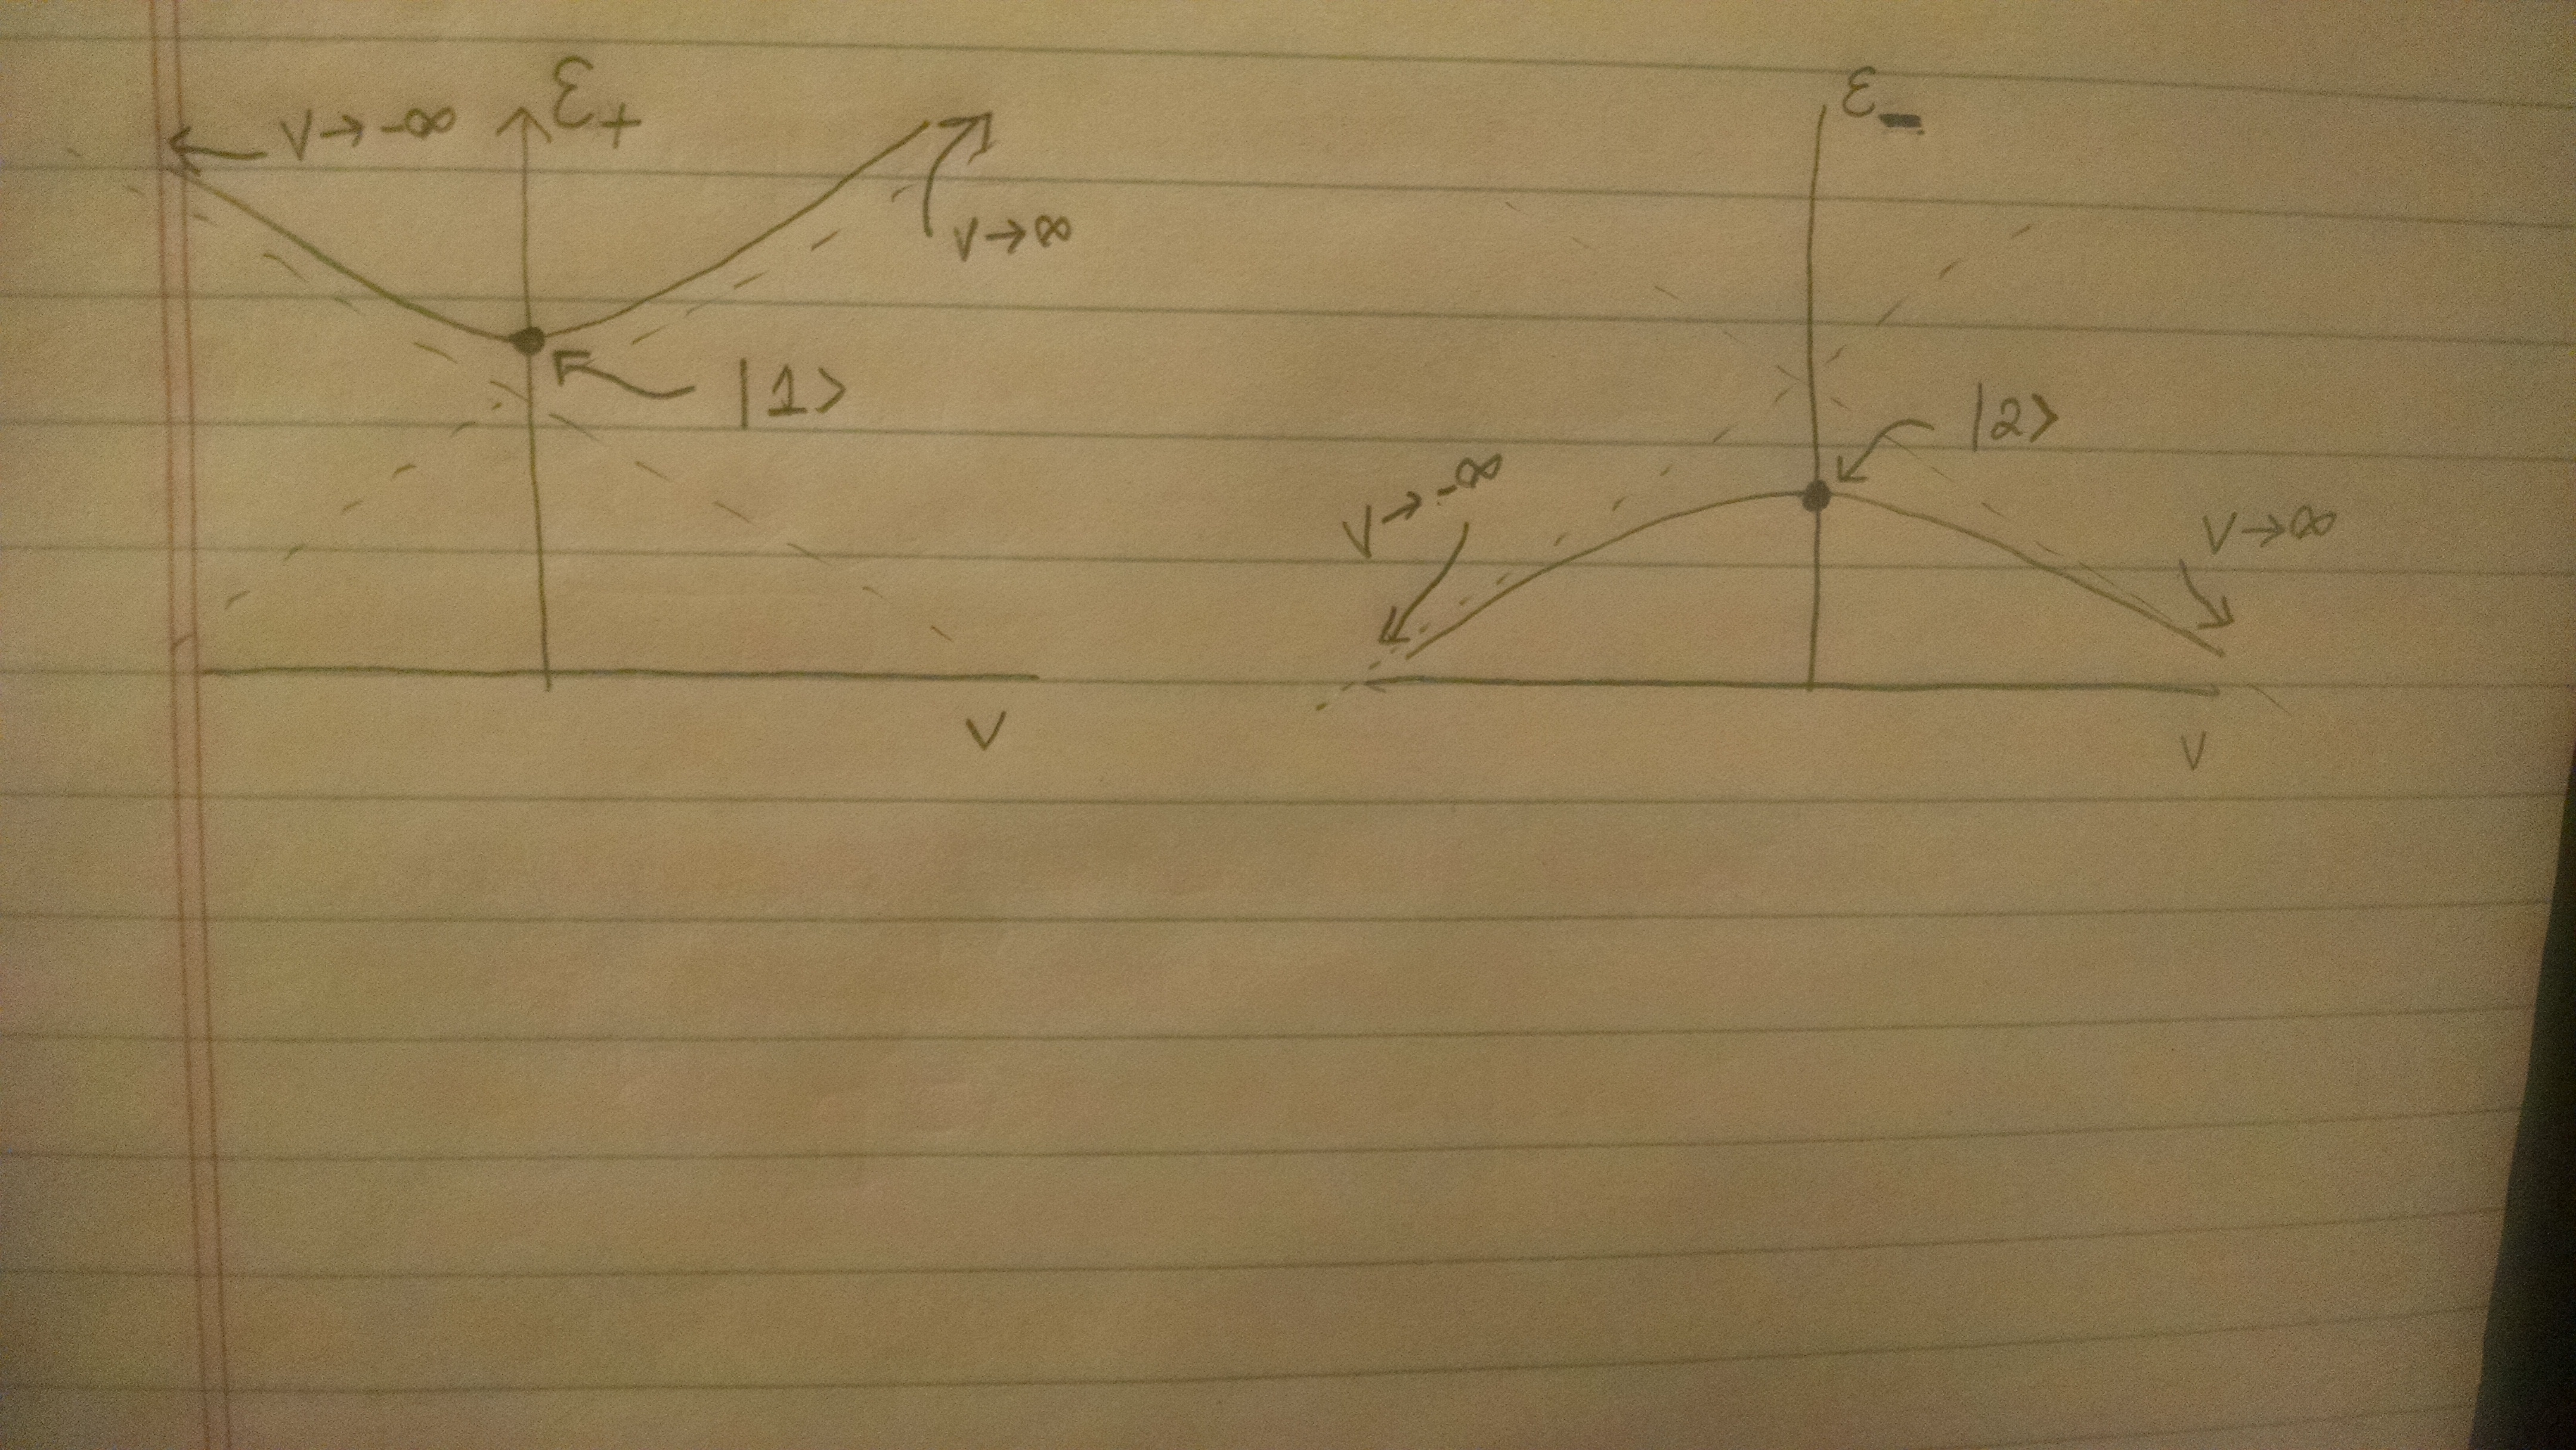 V → -∞
ε+
V → ∞
|1>
V
ε-
|2>
V → -∞
V → ∞
V